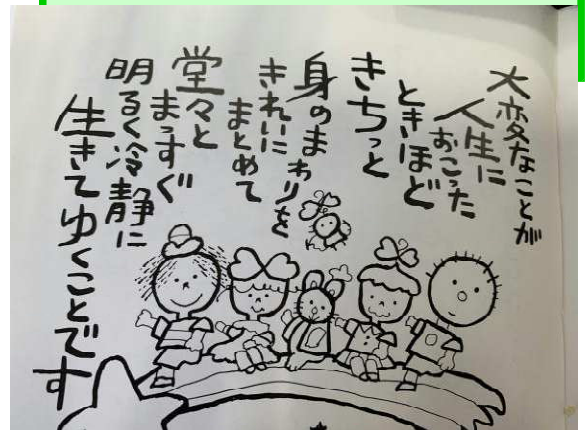 大変なことが
人生に
おこった
ときほど
きちっと
身のまわりを
きれいに
まとめて
堂々と
まっすぐ
明るく冷静に
生きてゆくことです